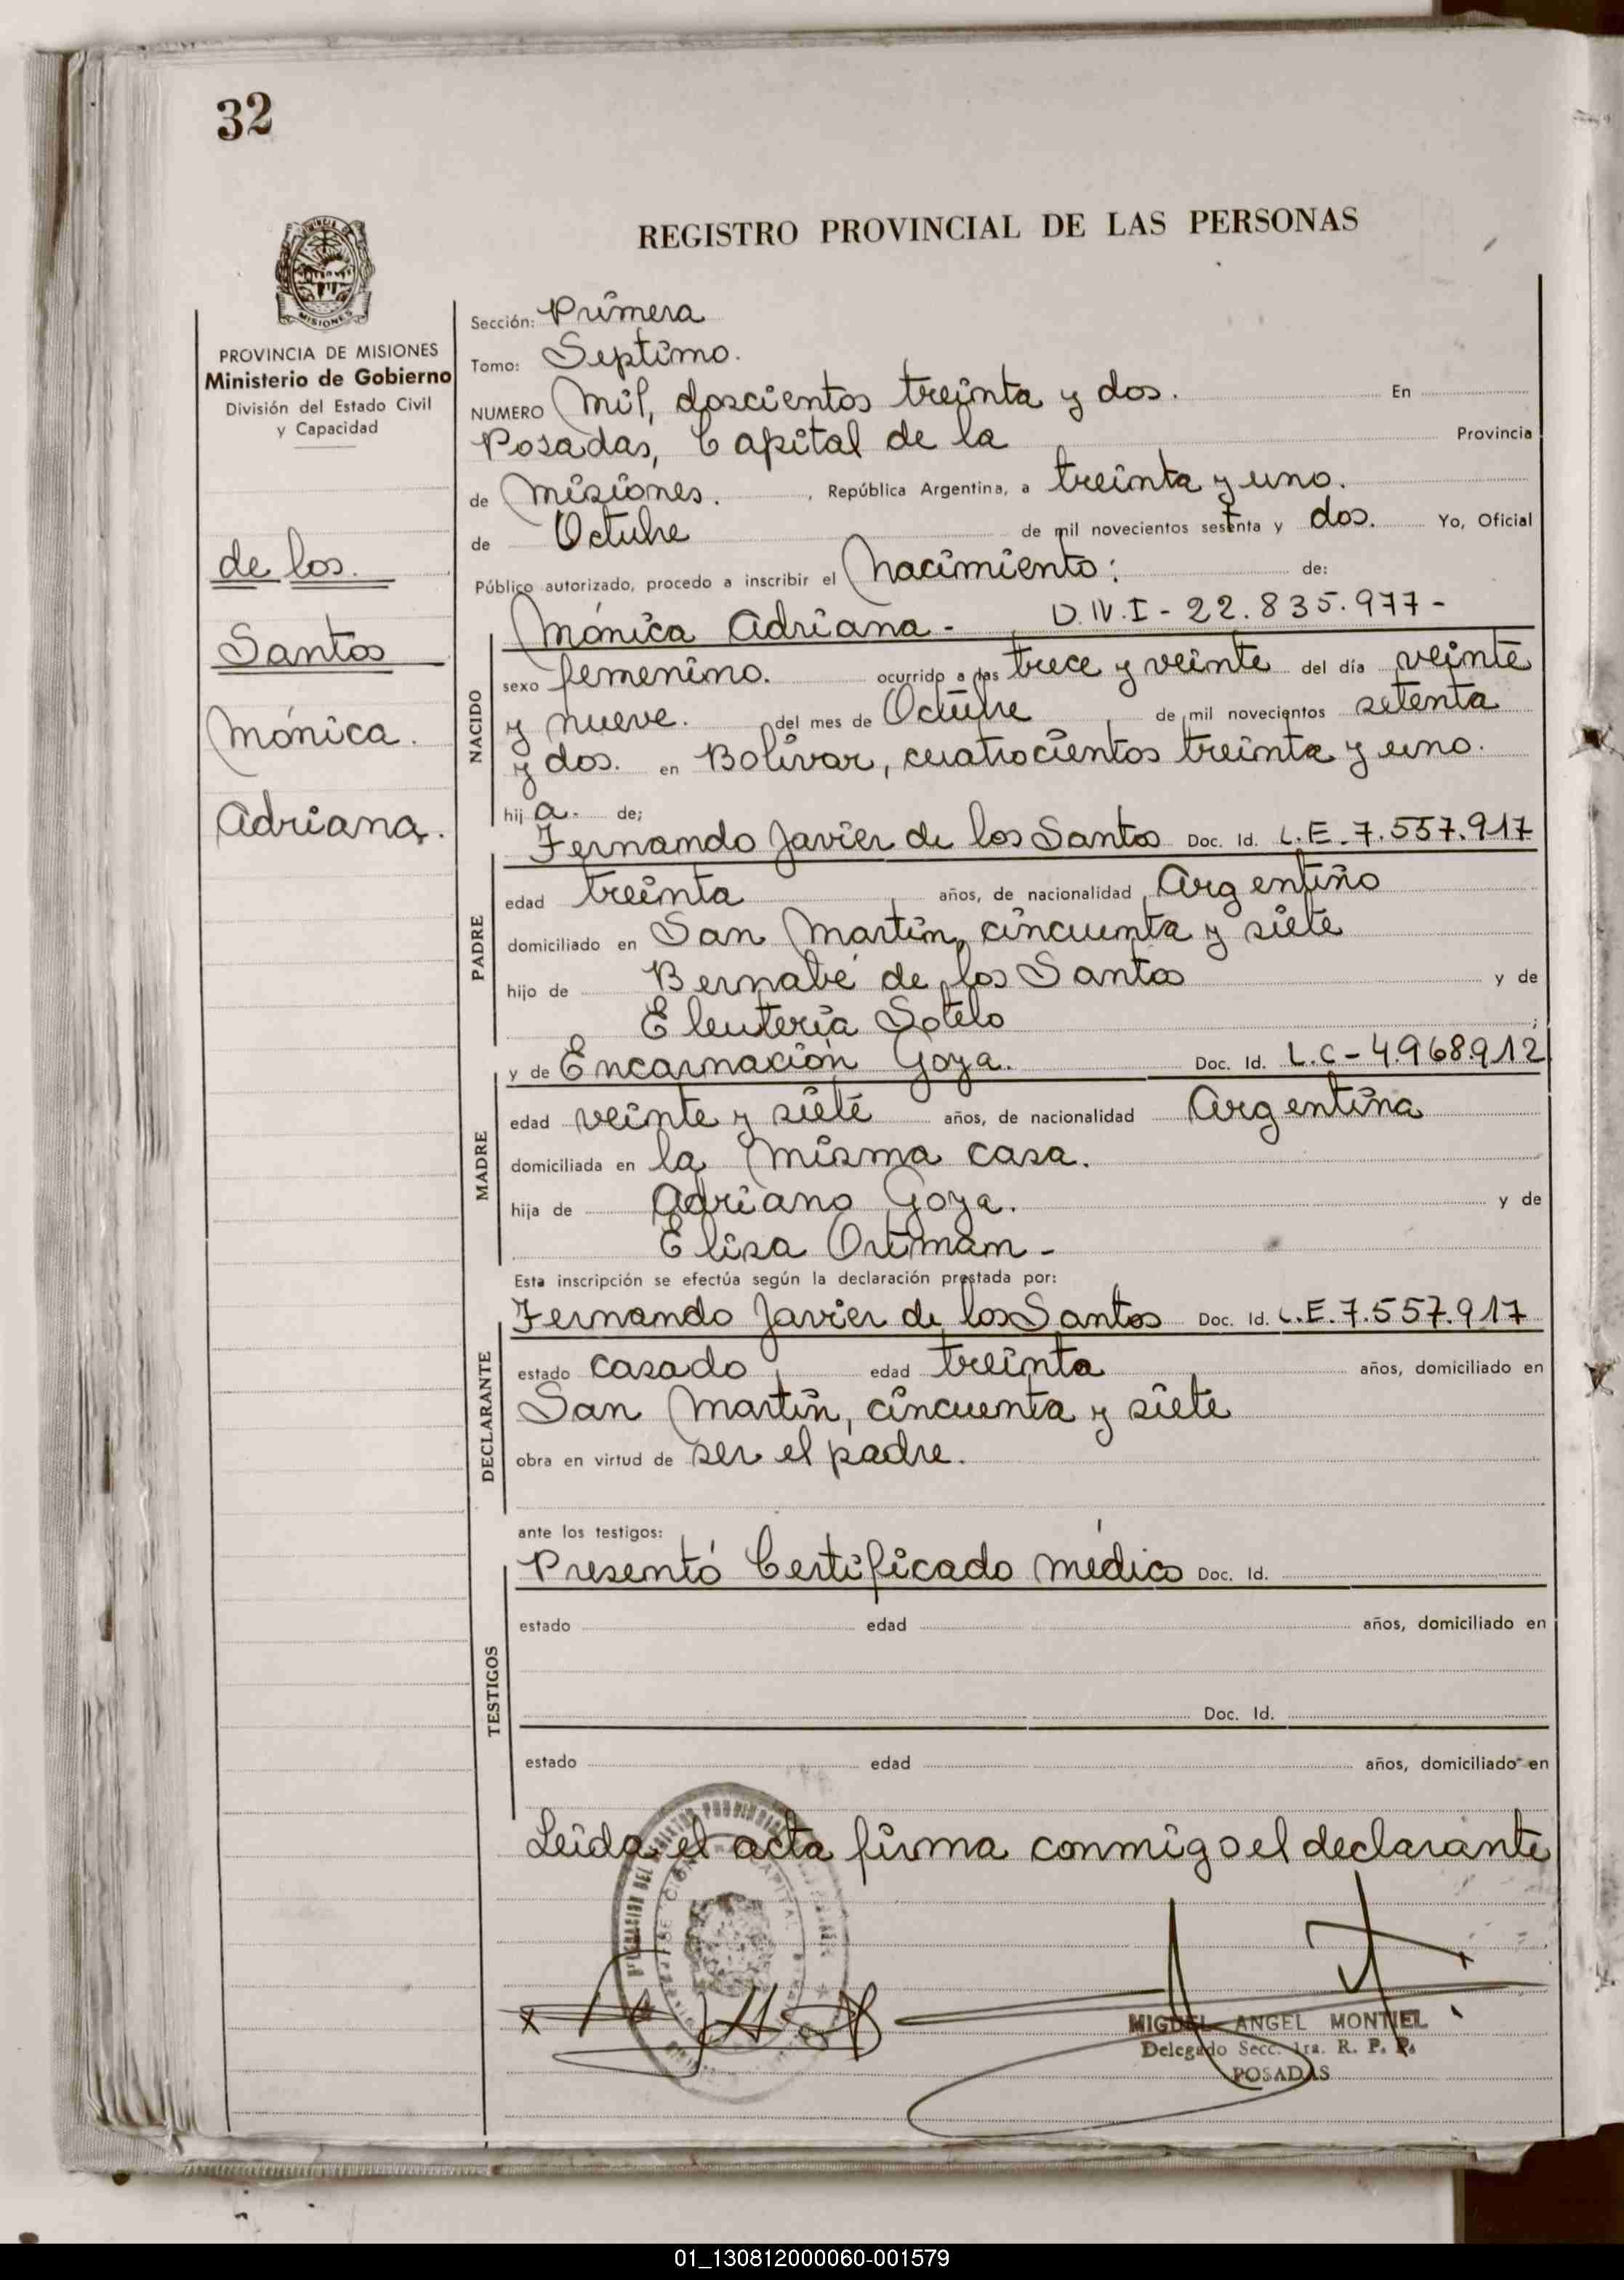 32
REGISTRO PROVINCIAL DE LAS PERSONAS
MISIONES
PROVINCIA DE MISIONES
Ministerio de Gobierno
División del Estado Civil
y Capacidad
de los.
Santos
Mónica.
Adriana.
Sección: Primera
Tomo: Septimo.
NUMERO Mil, doscientos treinta y dos. En
Posadas, Capital de la Provincia
de Misiones. , República Argentina, a treinta y uno.
de Octubre de mil novecientos setenta y dos. Yo, Oficial
Público autorizado, procedo a inscribir el Nacimiento: de:
Mónica Adriana - D.N.I - 22.835.977 -
NACIDO
sexo femenino. ocurrido a las trece y veinte del día veinte
y nueve. del mes de Octubre de mil novecientos setenta
y dos. en Bolívar, cuatrocientos treinta y uno.
hij a. de;
Fernando Javier de los Santos Doc. Id. L.E. 7.557.917
PADRE
edad treinta años, de nacionalidad Argentino
domiciliado en San Martín, cincuenta y siete
hijo de Bernabé de los Santos y de
Eleuteria Sotelo ;
y de Encarnación Goya. Doc. Id. L.C - 4.968.912
MADRE
edad veinte y siete años, de nacionalidad Argentina
domiciliada en la misma casa.
hija de Adriano Goya. y de
Elisa Ortman -
Esta inscripción se efectúa según la declaración prestada por:
Fernando Javier de los Santos Doc. Id. L.E. 7.557.917
DECLARANTE
estado casado edad treinta años, domiciliado en
San Martín, cincuenta y siete
obra en virtud de ser el padre.
ante los testigos:
Presentó Certificado médico Doc. Id.
TESTIGOS
estado edad años, domiciliado en
Doc. Id.
estado edad años, domiciliado en
Leida el acta firma conmigo el declarante
MIGUEL ANGEL MONTIEL
Delegado Secc. 1ra. R. P. P.
POSADAS
01_130812000060-001579